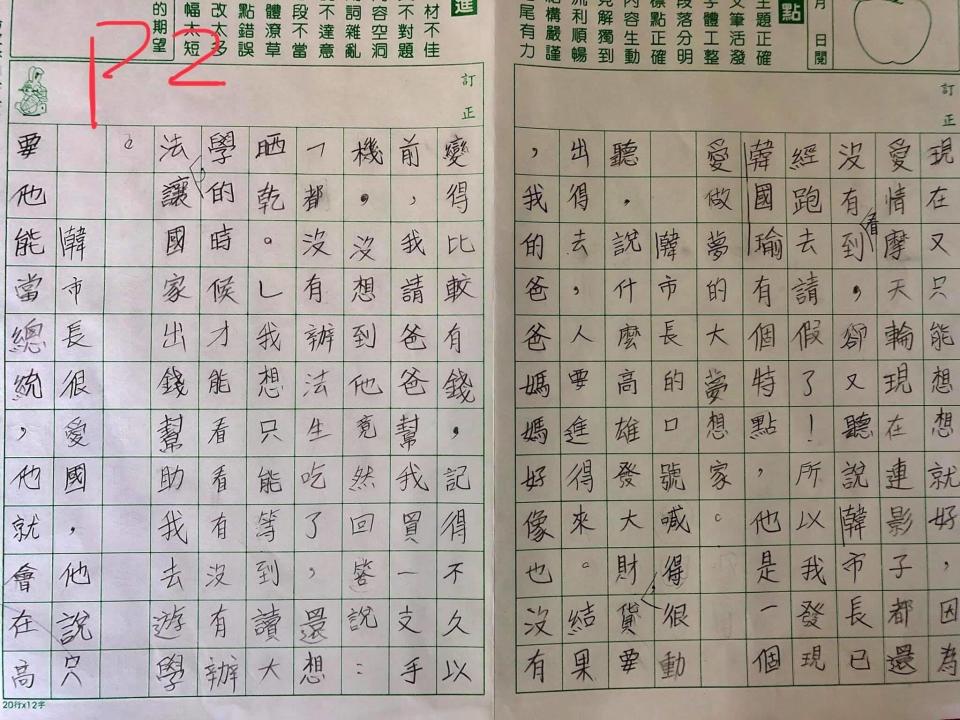 月 日閱
點
主題正確
文筆活潑
字體工整
段落分明
標點正確
內容生動
見解獨到
流利順暢
結構嚴謹
尾有力
訂正
現在又只能想想就好，因為
愛情摩天輪現在連影子都還
沒有看到，卻又聽說韓市長已
經跑去請假了！所以我發現
韓國瑜有個特點，他是一個
愛做夢的大夢想家。
韓市長的口號喊得很動
聽，說什麼高雄發大財，貨要
出得去，人要進得來。結果
，我的爸爸媽媽好像也沒有
進
材不佳
不對題
容空洞
詞雜亂
不達意
段不當
點錯誤
體潦草
改太多
幅太短
的期望
P2
訂正
變得比較有錢，記得不久以
前，我請爸爸幫我買一支手
機，沒想到他竟然回答說：
「都沒有辦法生吃了，還想
晒乾。」我想只能等到讀大
學的時候才能看看有沒有辦
法，讓國家出錢幫助我去遊學
。
韓市長很愛國，他說只
要他能當總統，他就會在高
20行x12字